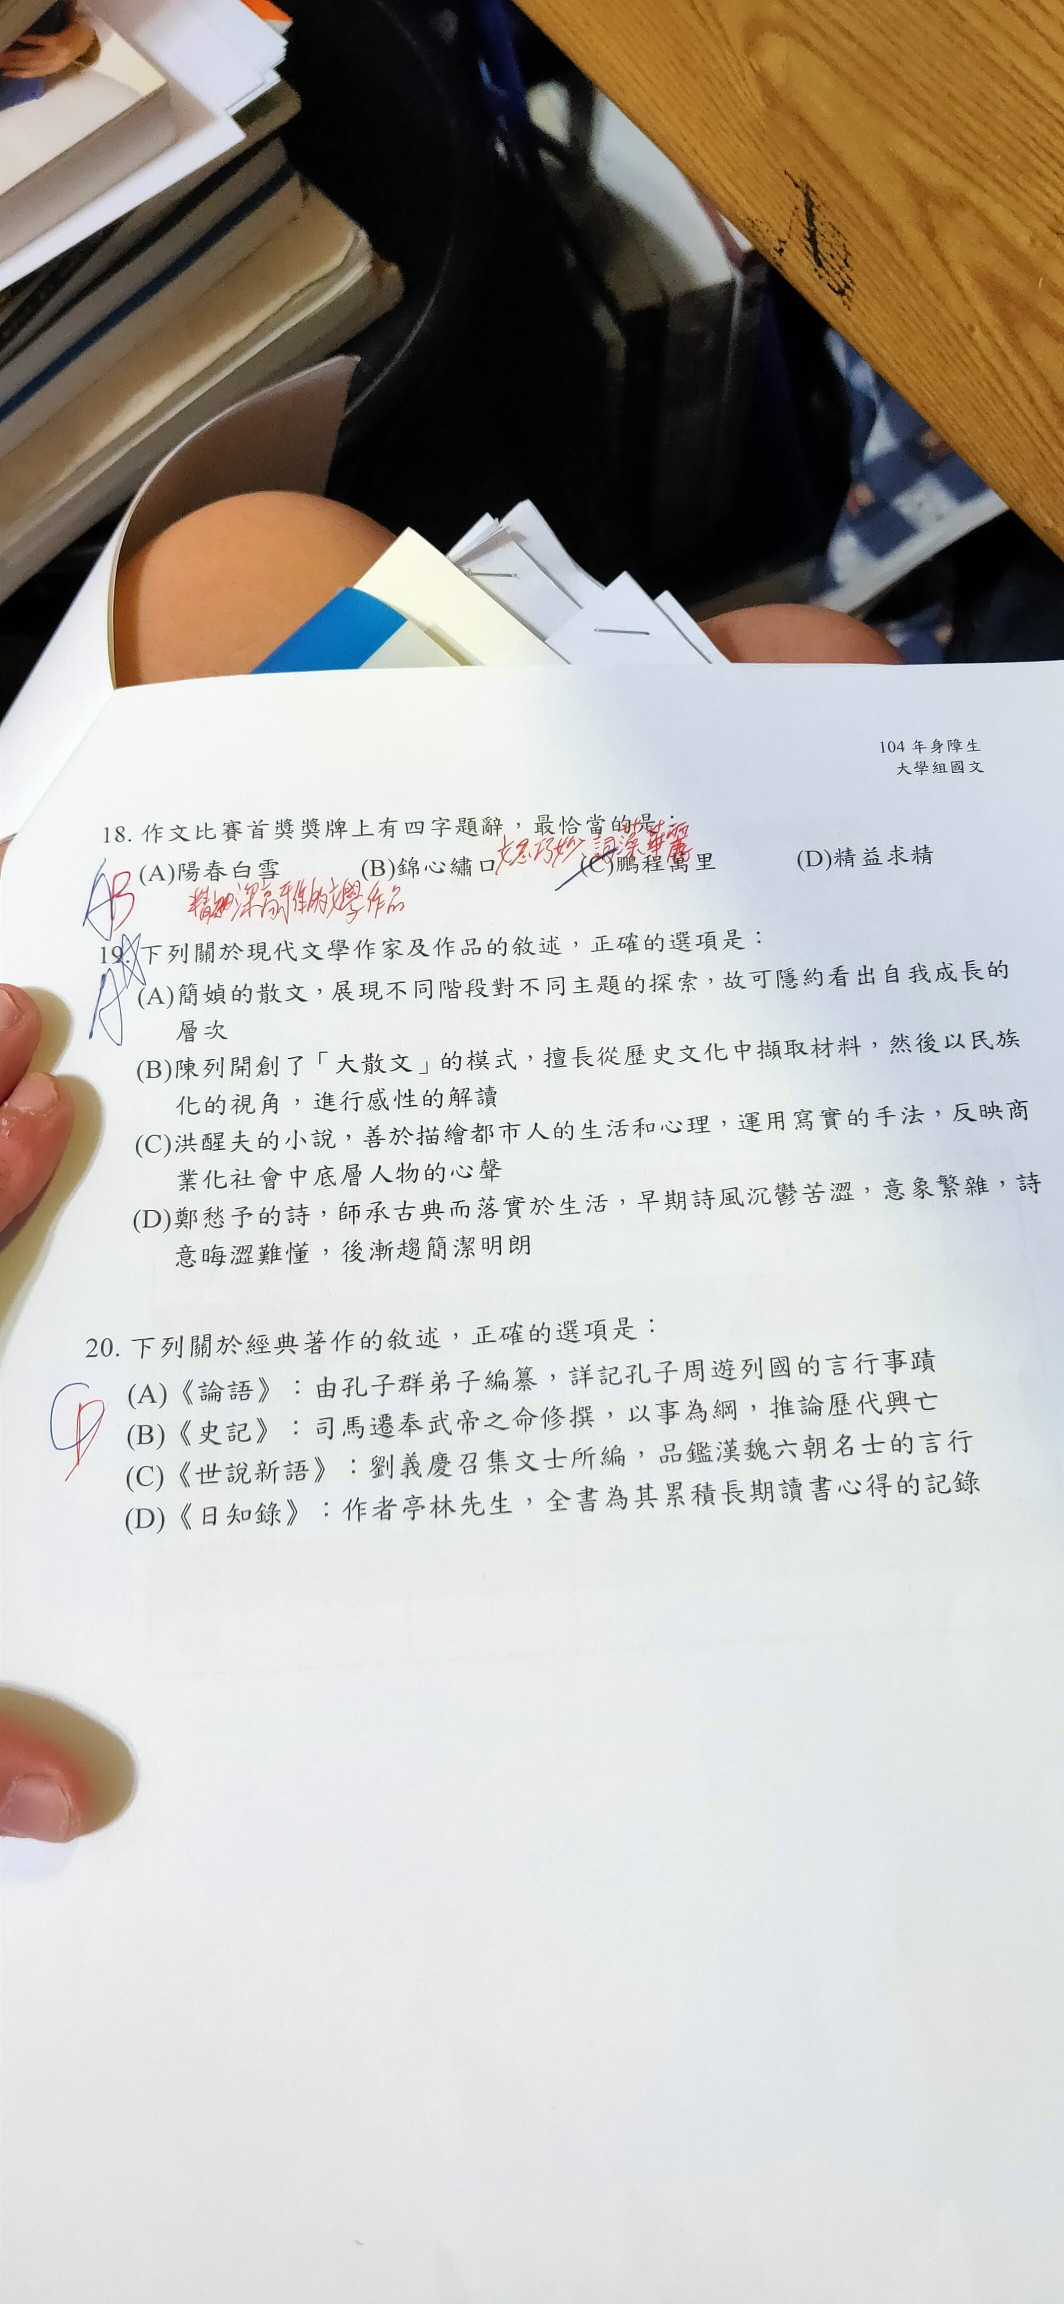 104 年身障生
大學組國文
18. 作文比賽首獎獎牌上有四字題辭，最恰當的是：
(A)陽春白雪 (B)錦心繡口 (C)鵬程萬里 (D)精益求精
文思巧妙 詞藻華麗
AB
19. 下列關於現代文學作家及作品的敘述，正確的選項是：
A
(A)簡媜的散文，展現不同階段對不同主題的探索，故可隱約看出自我成長的
層次
(B)陳列開創了「大散文」的模式，擅長從歷史文化中擷取材料，然後以民族
化的視角，進行感性的解讀
(C)洪醒夫的小說，善於描繪都市人的生活和心理，運用寫實的手法，反映商
業化社會中底層人物的心聲
(D)鄭愁予的詩，師承古典而落實於生活，早期詩風沉鬱苦澀，意象繁雜，詩
意晦澀難懂，後漸趨簡潔明朗
20. 下列關於經典著作的敘述，正確的選項是：
(A)《論語》：由孔子群弟子編纂，詳記孔子周遊列國的言行事蹟
CD
(B)《史記》：司馬遷奉武帝之命修撰，以事為綱，推論歷代興亡
(C)《世說新語》：劉義慶召集文士所編，品鑑漢魏六朝名士的言行
(D)《日知錄》：作者亭林先生，全書為其累積長期讀書心得的記錄